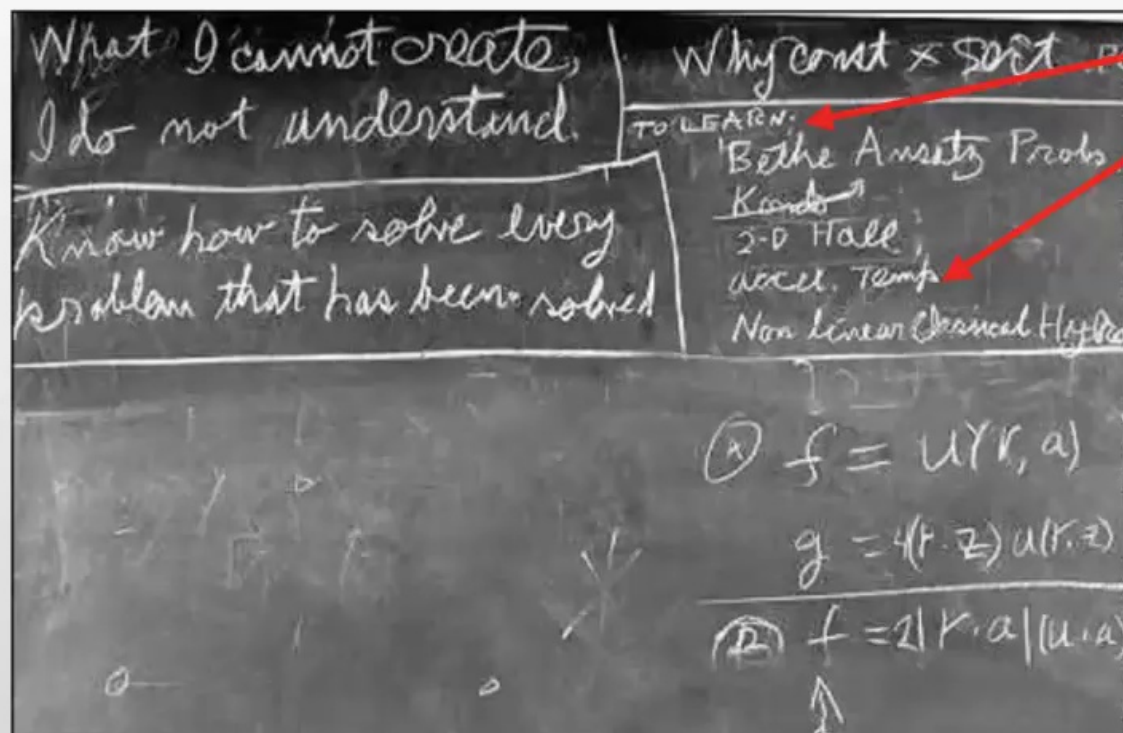 What I cannot create,
I do not understand.
Know how to solve every
problem that has been solved
Why const × sort
TO LEARN:
Bethe Ansatz Probs
Kondo
2-D Hall
accel. Temp
Non linear Classical Hydro
Ⓐ f = u(r, a)
g = 4(r·z) u(r, z)
f = 2|r·a|(u·a)